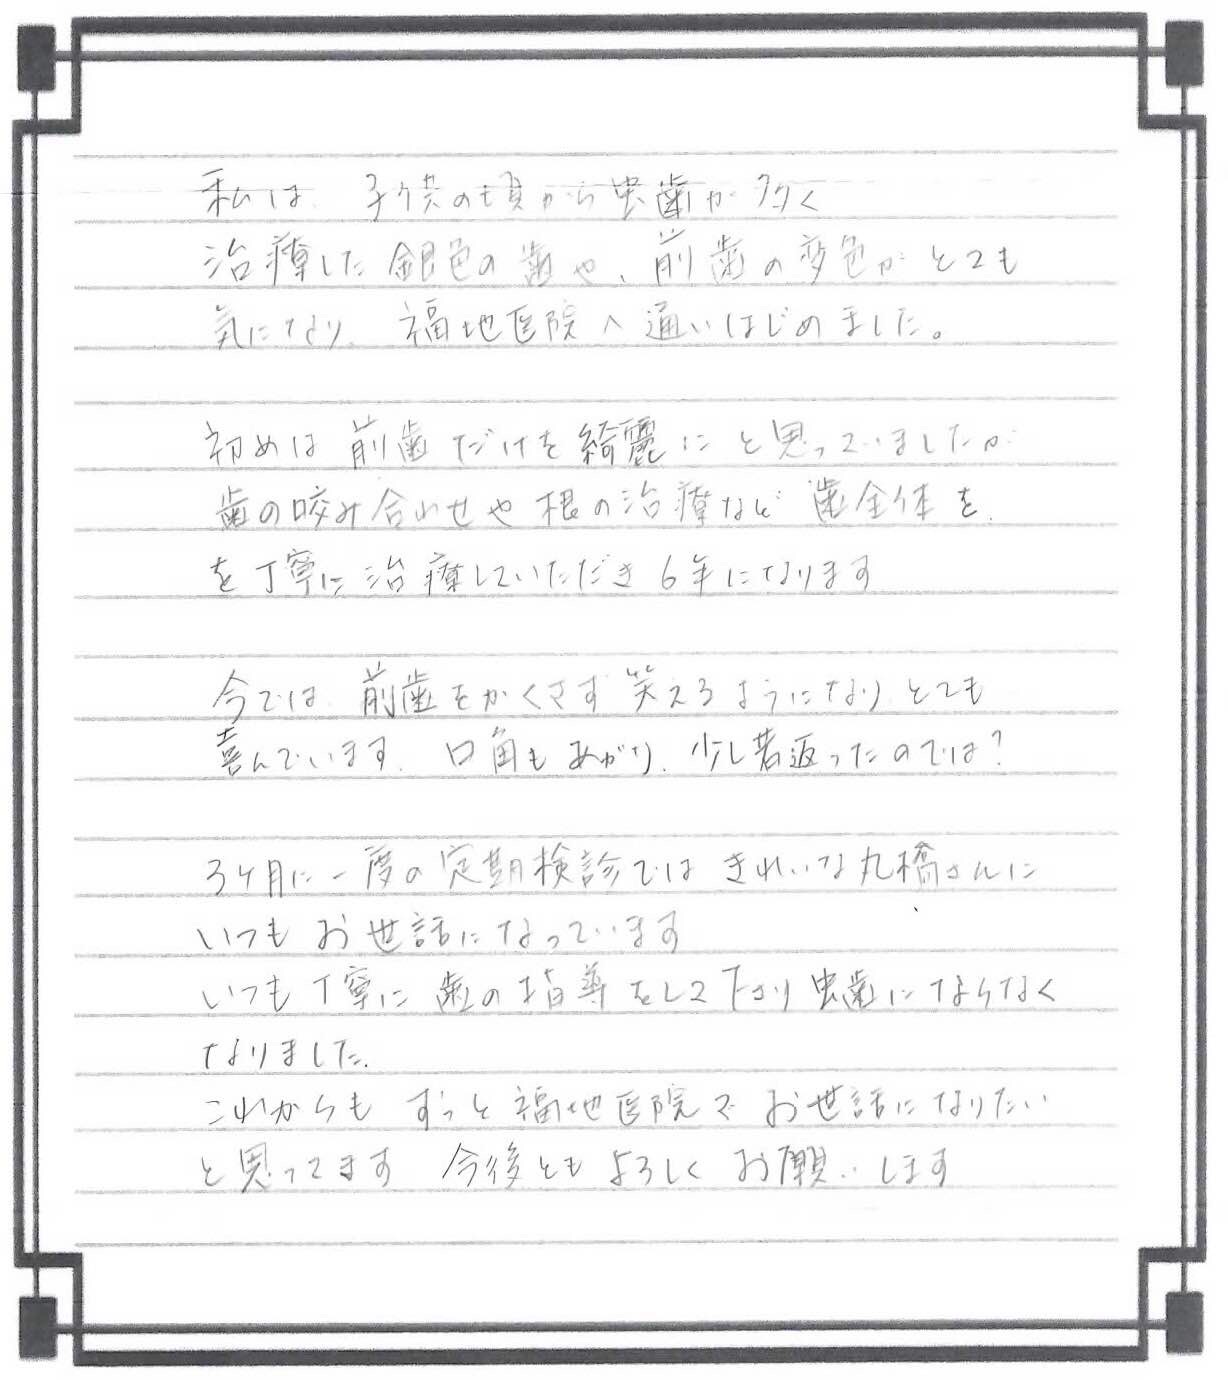 私は、子供の頃から虫歯が多く
治療した銀色の歯や、前歯の変色がとても
気になり、福地医院へ通いはじめました。
初めは前歯だけを綺麗にと思っていましたが
歯の咬み合わせや根の治療など歯全体を
を丁寧に治療していただき6年になります
今では、前歯をかくさず笑えるようになり、とても
喜んでいます。口角もあがり、少し若返ったのでは?
3ヶ月に一度の定期検診ではきれいな丸橋さんに
いつもお世話になっています
いつも丁寧に歯の指導をして下さり虫歯にならなく
なりました。
これからもずっと福地医院でお世話になりたい
と思ってます 今後ともよろしくお願いします